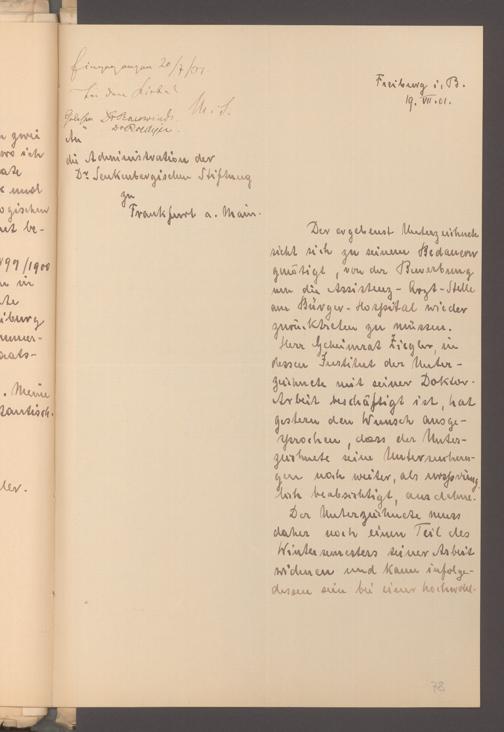 Eingegangen 20/7/01
Zu den Akten
Gelesen Dr
Dr Roediger.
Freiburg i. B.
19. VII. 01.
An
die Administration der
Dr. Senkenbergischen Stiftung
zu
Frankfurt a. Main.
Der ergebenst Unterzeichnete
sieht sich zu seinem Bedauern
genötigt, von der Bewerbung
um die Assistenz-Arzt-Stelle
am Bürger-Hospital wieder
zurücktreten zu müssen.
Herr Geheimrat Ziegler, in
dessen Institut der Unter-
zeichnete mit seiner Doktor-
Arbeit beschäftigt ist, hat
gestern den Wunsch ausge-
sprochen, dass der Unter-
zeichnete seine Untersuchun-
gen noch weiter, als ursprüng-
lich beabsichtigt, ausdehne.
Der Unterzeichnete muss
daher noch einen Teil des
Wintersemesters seiner Arbeit
widmen und kann infolge-
dessen sein bei einer hochwohl-
78
zwei
ogischen
ut be-
99/1900
in
iburg
mmer-
aats-
. Meine
tantisch.
ler.